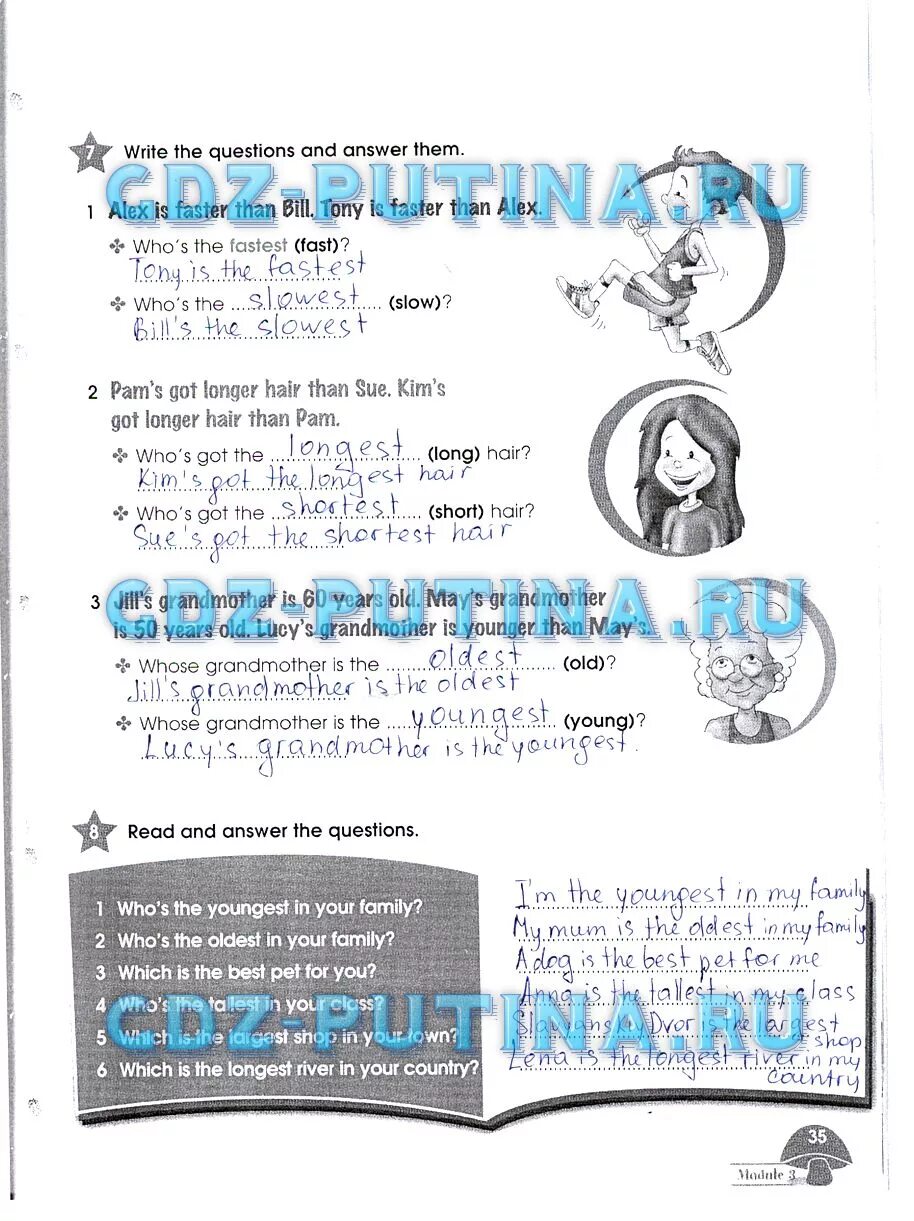 7 Write the questions and answer them.
GDZ-PUTINA.RU
1 Alex is faster than Bill. Tony is faster than Alex.
Who's the fastest (fast)?
Tony is the fastest
Who's the slowest (slow)?
Bill's the slowest
2 Pam's got longer hair than Sue. Kim's
got longer hair than Pam.
Who's got the longest (long) hair?
Kim's got the longest hair
Who's got the shortest (short) hair?
Sue's got the shortest hair
GDZ-PUTINA.RU
3 Jill's grandmother is 60 years old. May's grandmother
is 50 years old. Lucy's grandmother is younger than May's.
Whose grandmother is the oldest (old)?
Jill's grandmother is the oldest
Whose grandmother is the youngest (young)?
Lucy's grandmother is the youngest.
8 Read and answer the questions.
1 Who's the youngest in your family?
2 Who's the oldest in your family?
3 Which is the best pet for you?
4 Who's the tallest in your class?
5 Which is the largest shop in your town?
6 Which is the longest river in your country?
I'm the youngest in my family
My mum is the oldest in my family
A dog is the best pet for me
Anna is the tallest in my class
Slavyansky Dvor is the largest
shop
Lena is the longest river in my
country
GDZ-PUTINA.RU
35
Module 3